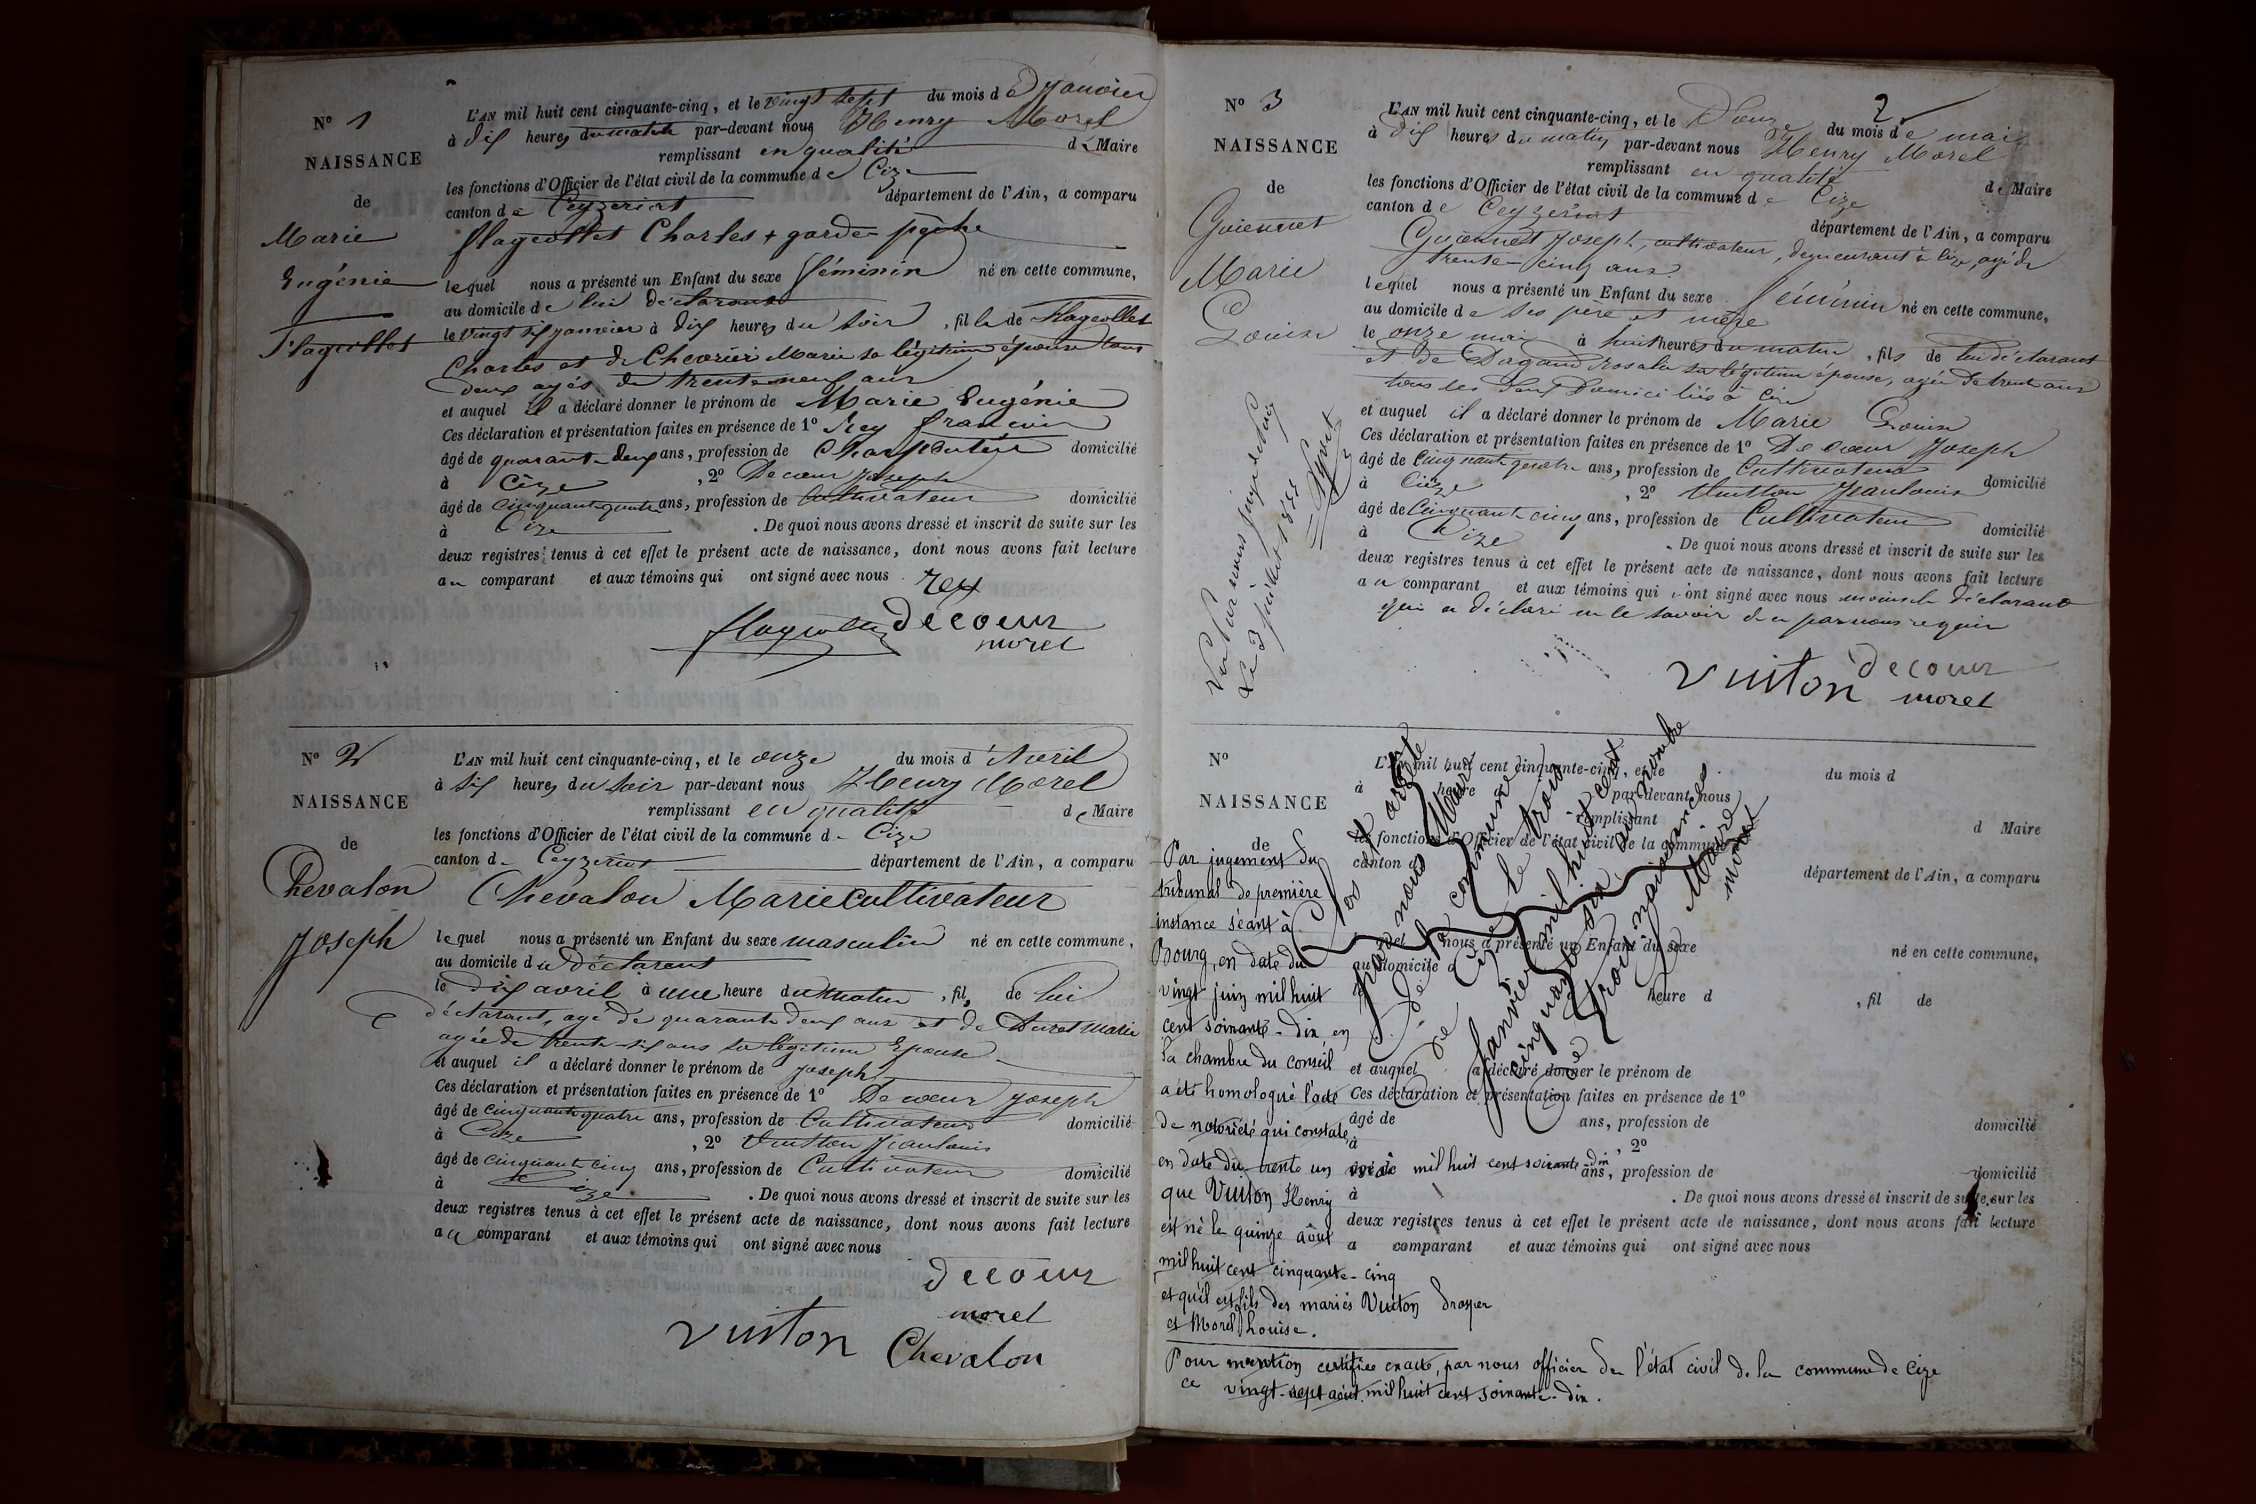 N° 1
NAISSANCE
de
Marie
Eugénie
Flageollet
L'AN mil huit cent cinquante-cinq, et le vingt sept du mois de Janvier
à dix heures du matin par-devant nous Henry Morel
remplissant en qualité de Maire
les fonctions d'Officier de l'état civil de la commune de Cize
canton de Ceyzeriat département de l'Ain, a comparu
flageollet Charles garde-pêche
lequel nous a présenté un Enfant du sexe féminin né en cette commune,
au domicile de lui déclarant
le vingt six janvier à dix heures du soir, fille de flageollet
Charles et de Chevrier Marie sa légitime épouse tous
deux agés de trente neuf ans
et auquel il a déclaré donner le prénom de Marie Eugénie
Ces déclaration et présentation faites en présence de 1° Rey
âgé de quarante deux ans, profession de Charpentier domicilié
à Cize, 2° Decoeur Joseph
âgé de cinquante quatre ans, profession de Cultivateur domicilié
à Cize. De quoi nous avons dressé et inscrit de suite sur les
deux registres tenus à cet effet le présent acte de naissance, dont nous avons fait lecture
au comparant et aux témoins qui ont signé avec nous
rey
flageollet decoeur
morel
N° 2
NAISSANCE
de
Chevalon
Joseph
L'AN mil huit cent cinquante-cinq, et le onze du mois d'Avril
à six heures du soir par-devant nous Henry Morel
remplissant en qualité de Maire
les fonctions d'Officier de l'état civil de la commune de Cize
canton de Ceyzeriat département de l'Ain, a comparu
Chevalon Marie cultivateur
lequel nous a présenté un Enfant du sexe masculin né en cette commune,
au domicile du déclarant
le dix avril à une heure du matin, fils de lui
déclarant, agé de quarante deux ans et de Marie
agée de trente six ans sa légitime Epouse
et auquel il a déclaré donner le prénom de Joseph
Ces déclaration et présentation faites en présence de 1° Decoeur Joseph
âgé de cinquante quatre ans, profession de Cultivateur domicilié
à Cize, 2° Vuitton Jean louis
âgé de cinquante cinq ans, profession de Cultivateur domicilié
à Cize. De quoi nous avons dressé et inscrit de suite sur les
deux registres tenus à cet effet le présent acte de naissance, dont nous avons fait lecture
au comparant et aux témoins qui ont signé avec nous
decoeur
morel
vuiton Chevalon
2
N° 3
NAISSANCE
de
Guiennet
Marie
Louise
Vu Par nous juge de Paix
Le 3 juillet 1855
L'AN mil huit cent cinquante-cinq, et le Douze du mois de mai
à dix heures du matin par-devant nous Henry Morel
remplissant en qualité de Maire
les fonctions d'Officier de l'état civil de la commune de Cize
canton de Ceyzeriat département de l'Ain, a comparu
Guiennet Joseph, cultivateur, demeurant à Cize, agé de
trente-cinq ans
lequel nous a présenté un Enfant du sexe féminin né en cette commune,
au domicile de ses père et mère
le onze mai à huit heures du matin, fils de lui déclarant
et de Dagand Rosalie sa légitime épouse, agée de trente ans
tous les deux Domiciliés à Cize
et auquel il a déclaré donner le prénom de Marie Louise
Ces déclaration et présentation faites en présence de 1° Decoeur Joseph
âgé de cinquante quatre ans, profession de Cultivateur domicilié
à Cize, 2° Vuitton Jean louis
âgé de Cinquante cinq ans, profession de Cultivateur domicilié
à Cize. De quoi nous avons dressé et inscrit de suite sur les
deux registres tenus à cet effet le présent acte de naissance, dont nous avons fait lecture
au comparant et aux témoins qui ont signé avec nous moins le déclarant
qui a déclaré ne le savoir de ce par nous requis
decoeur
vuiton morel
N°
NAISSANCE
de
L'AN mil huit cent cinquante-cinq, et le du mois d
à heure par-devant nous
remplissant d Maire
les fonctions d'Officier de l'état civil de la commune
canton d département de l'Ain, a comparu
lequel nous a présenté un Enfant du sexe né en cette commune,
au domicile d
heure d, fil de
et auquel a déclaré donner le prénom de
Ces déclaration et présentation faites en présence de 1°
âgé de ans, profession de domicilié
à, 2°
ans, profession de domicilié
à. De quoi nous avons dressé et inscrit de suite sur les
deux registres tenus à cet effet le présent acte de naissance, dont nous avons fait lecture
a comparant et aux témoins qui ont signé avec nous
Clos et arrêté
par nous Maire
de la commune
de Cize le trois
Janvier mil huit cent
cinquante six, au nombre
de trois naissances.
Maire
morel
Par jugement du
tribunal de première
instance séant à
Bourg, en date du
vingt juin mil huit
cent soixante-dix en
la chambre du conseil
a été homologué l'acte
de notoriété qui constate,
en date du trente un mai mil huit cent soixante-dix
que Vuiton Henry
est né le quinze août
mil huit cent cinquante-cinq
et qu'il est fils des mariés Vuiton Prosper
et Morel Louise.
Pour mention certifiée exacte, par nous officier de l'état civil de la commune de Cize
ce vingt-sept août mil huit cent soixante-dix.